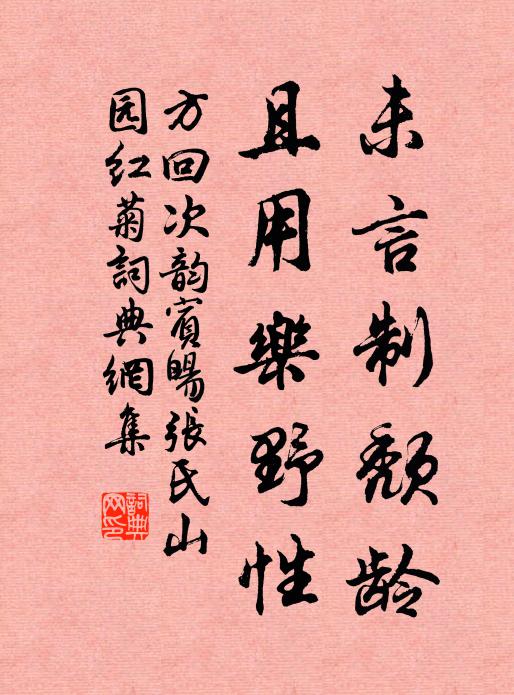 未言制颓龄
且用樂野性
方回次韵賓暘張氏山
园红菊詞典網集
詞典
网印